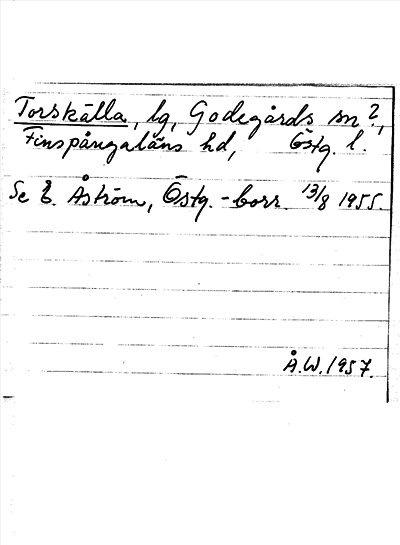 Torskälla, lg, Godegårds sn?,
Finspångaläns hd, Östg. l.
Se E. Åström, Östg.-borr. 13/8 1955.
Å.W. 1957.